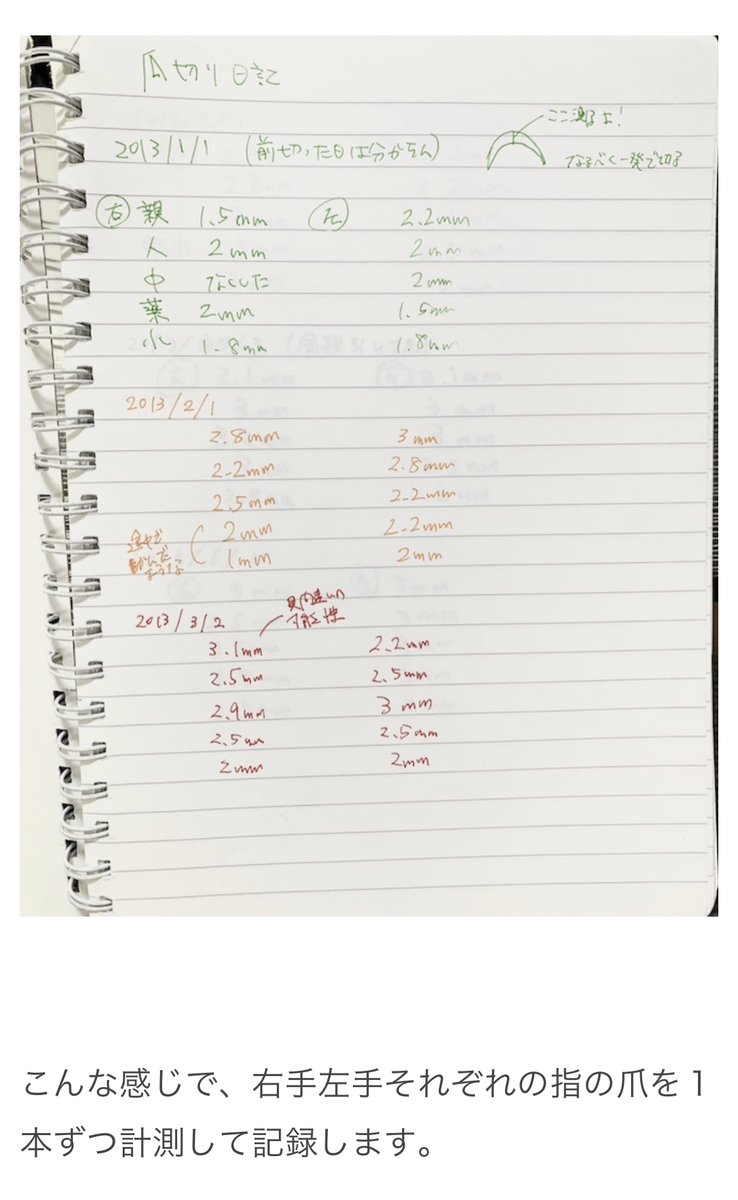 爪切り日記
2013/1/1 (前切った日は分からん)
ここ測るよ!
なるべく一発で切る
右 親 1.5mm 左 2.2mm
人 2mm 2mm
中 なくした 2mm
薬 2mm 1.5mm
小 1.8mm 1.8mm
2013/2/1
2.8mm 3mm
2.2mm 2.8mm
2.5mm 2.2mm
2mm 2.2mm
1mm 2mm
途中で
2013/3/2
見間違いの
可能性
3.1mm 2.2mm
2.5mm 2.5mm
2.9mm 3mm
2.5mm 2.5mm
2mm 2mm
こんな感じで、右手左手それぞれの指の爪を1
本ずつ計測して記録します。